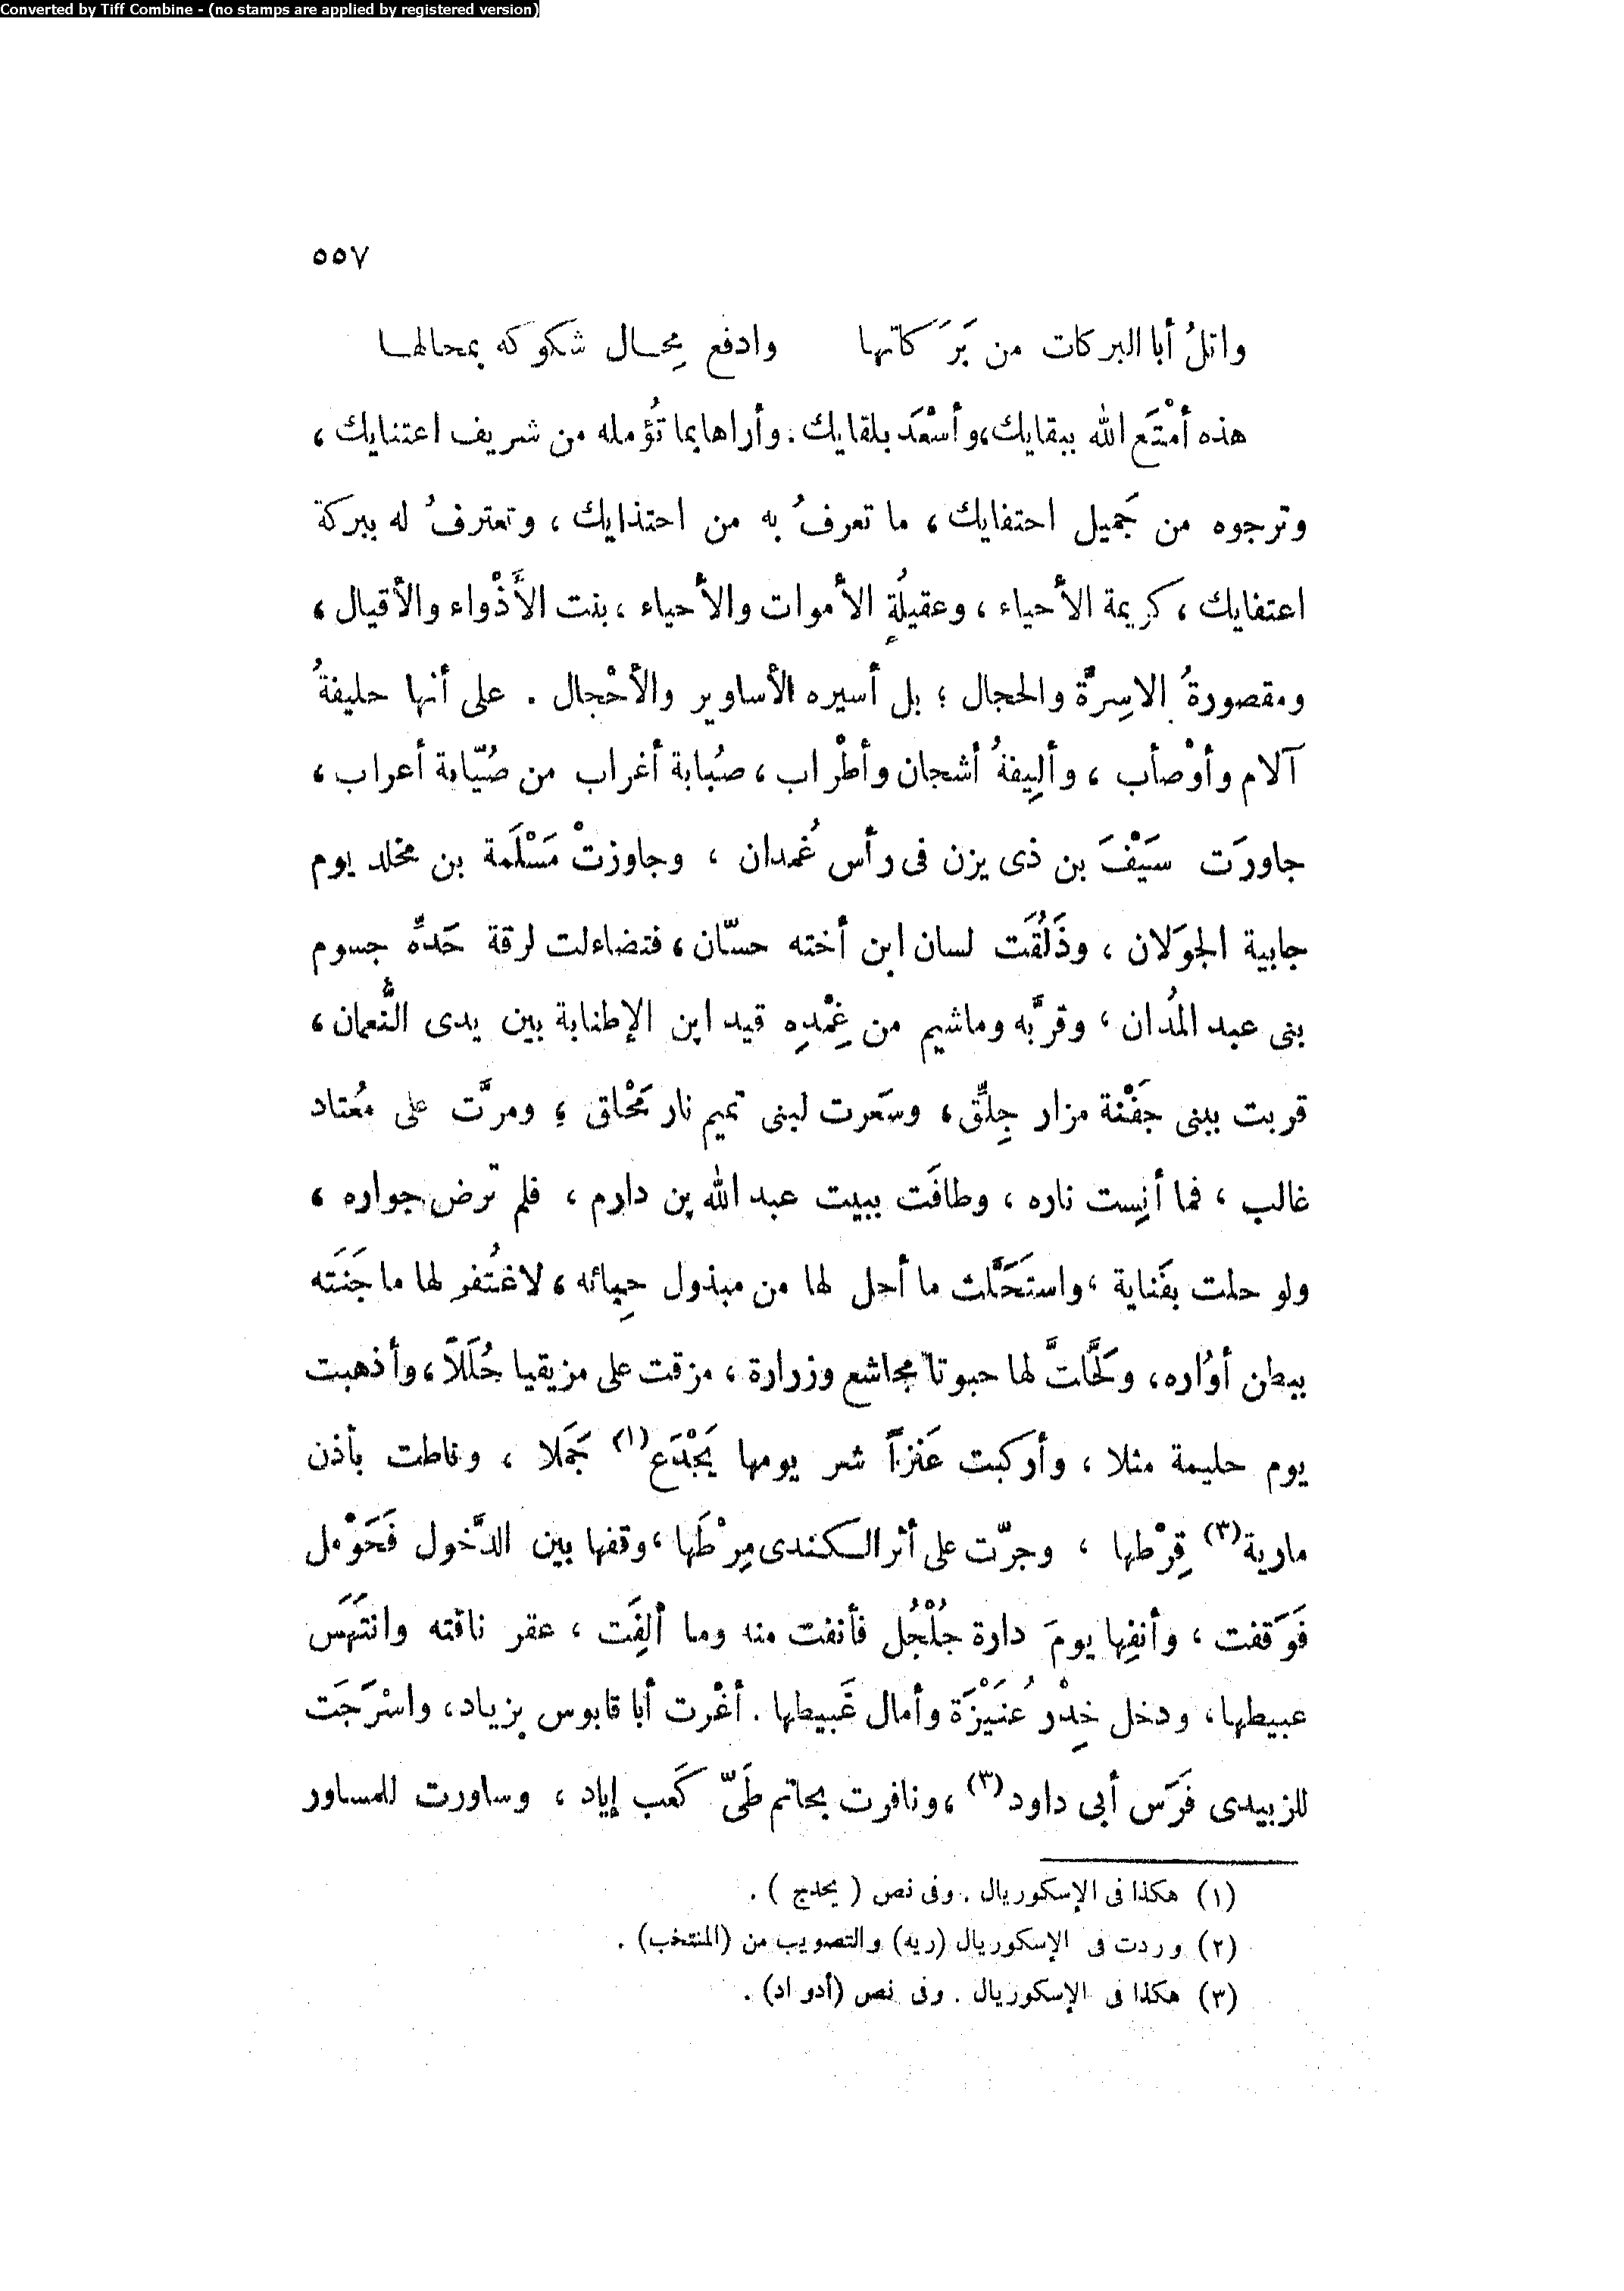 Converted by Tiff Combine - (no stamps are applied by registered version)
٥٥٧
واتلُ أبا البركات من بَرَكاتها وادفع مِحـال شكوكه بمحالهـا
هذه أمْتَع الله ببقايك، وأسْعَد بلقايك. وأراها بما تُؤمله من شريف اعتنايك،
وترجوه من جَميل احتفايك، ما تعرفُ به من احتذايك، وتعترفُ له ببركة
اعتفايك، كريمة الأحياء، وعقيلُةِ الأموات والأحياء، بنت الأَذْواء والأقيال،
ومقصورةُ الاسِرَّة والحجال؛ بل أسيره الأساوير والأحْجال. على أنها حليفةُ
آلام وأوْصأب، وألِيفةُ أشجان وأطْراب، صُبابة أغراب من صُيّابة أعراب،
جاورَت سَيْفَ بن ذى يزن فى رأس غُمدان، وجاوزتْ مَسْلَمة بن مخلد يوم
جابية الجوَلان، وذَلُقَت لسان ابن أخته حسّان، فتضاءلت لرقة حَدِّه جسوم
بنى عبد المُدان، وقرَّبه وماشيم من غِمْدِه قيد ابن الإطنابة بين يدى النُّعمان،
قربت ببنى جَفْنة مزار جِلِّق، وسَعرت لبنى تميم نار مَحْلق، ومرَّت على مُعتاد
غالب، فما أنِست ناره، وطافَت ببيت عبد الله بن دارم، فلم ترض جواره،
ولو حلت بفَناية، واستَحَلَّت ما أحل لها من مبذول حِبائه، لاغتُفر لها ما جَنَته
ببطن أوُاره، وَلَحَّاتَّ لها حبوتا مجاشع وزرارة، مزقت على مزيقيا حُلَلاً، وأذهبت
يوم حليمة مثلا، وأركبت عَنزاً شر يومها يَجْدَع(١) جَملا، وناطت بأذن
مارية(٣) قِرْطها، وجرّت على أثر الـكندى مِرْطَها، وقفها بين الدَّخول فَحَوْمل
فَوَقفت، وأنفِها يومَ دارة جُلْجُل فأنفت منه وما ألِفَت، عقر ناقته وانتَهَس
عبيطها، ودخل خِدْر عُنَيْزَة وأمال غَبيطها. أغْرت أبا قابوس بزياد، واسْرَجَت
للزبيدى فَرَس أبى داود(٣)، ونافرت بحاتم طَىّ كَعب إياد، وساورت للمساور
(١) هكذا فى الإسكوريال. وفى نص (يحدج).
(٢) وردت فى الإسكوريال (ريه) والتصويب من (المنتخب).
(٣) هكذا فى الإسكوريال. وفى نص (أدواد).